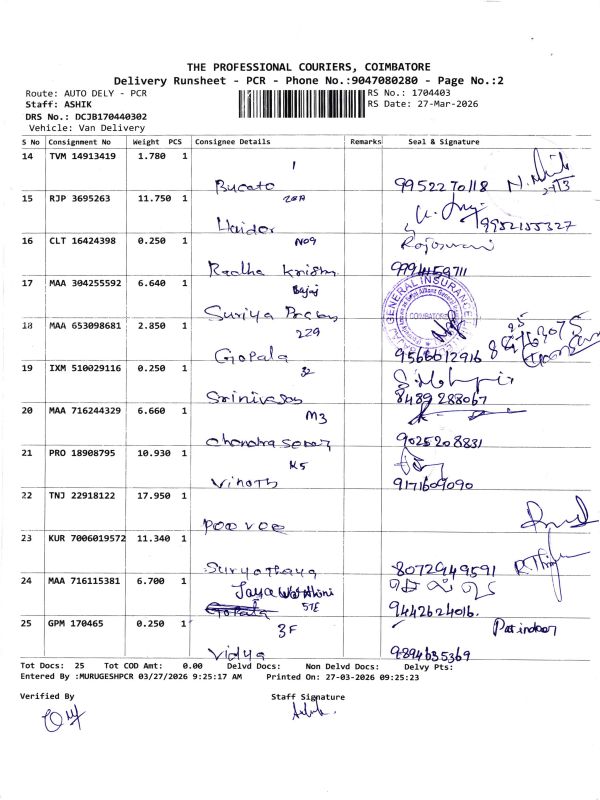 THE PROFESSIONAL COURIERS, COIMBATORE
Delivery Runsheet - PCR - Phone No.:9047080280 - Page No.:2
Route: AUTO DELY - PCR
RS No.: 1704403
Staff: ASHIK
RS Date: 27-Mar-2026
DRS No.: DCJB170440302
Vehicle: Van Delivery
S No Consignment No Weight PCS Consignee Details Remarks Seal & Signature
14 TVM 14913419 1.780 1
1
Bucato 9952270118
15 RJP 3695263 11.750 1
28A
Haidor 9952155327
16 CLT 16424398 0.250 1
N09
Radha Krishn 9994159711
17 MAA 304255592 6.640 1
Bajaj
Suriya
GENERAL INSURANCE
COIMBATORE
18 MAA 653098681 2.850 1
229
Gopala 9566612916
19 IXM 510029116 0.250 1
32
Srinivasan 8489288067
20 MAA 716244329 6.660 1
M3
Chandra 9025208831
21 PRO 18908795 10.930 1
K5
Vinoth 9171609090
22 TNJ 22918122 17.950 1
Poovee
23 KUR 7006019572 11.340 1
Suryathaya 8072949591
24 MAA 716115381 6.700 1
Jaya
Gopala 51E
9442624016.
25 GPM 170465 0.250 1
3F
Vidya 9894635369
Tot Docs: 25 Tot COD Amt: 0.00 Delvd Docs: Non Delvd Docs: Delvy Pts:
Entered By :MURUGESHPCR 03/27/2026 9:25:17 AM Printed On: 27-03-2026 09:25:23
Verified By Staff Signature